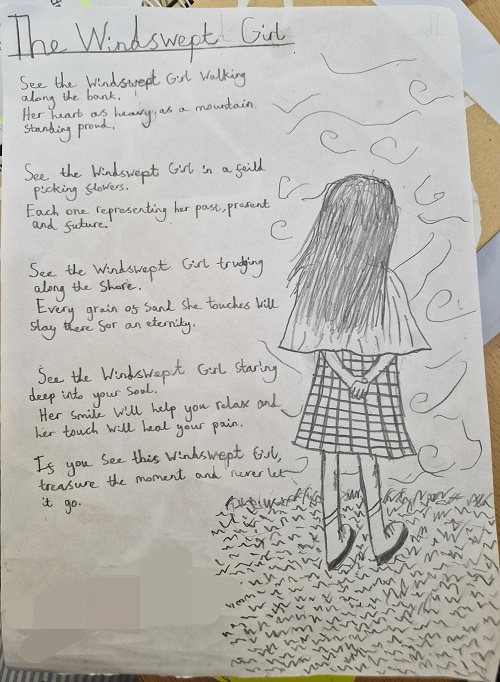 The Windswept Girl
See the Windswept Girl Walking
along the bank.
Her heart as heavy as a mountain
standing proud.
See the Windswept Girl in a feild
picking flowers.
Each one representing her past, present
and future.
See the Windswept Girl trudging
along the Shore.
Every grain of Sand She touches Will
Stay there for an eternity.
See the Windswept Girl Staring
deep into your Soul.
Her Smile Will help you relax and
her touch Will heal your pain.
If you See this Windswept Girl,
treasure the moment and never let
it go.